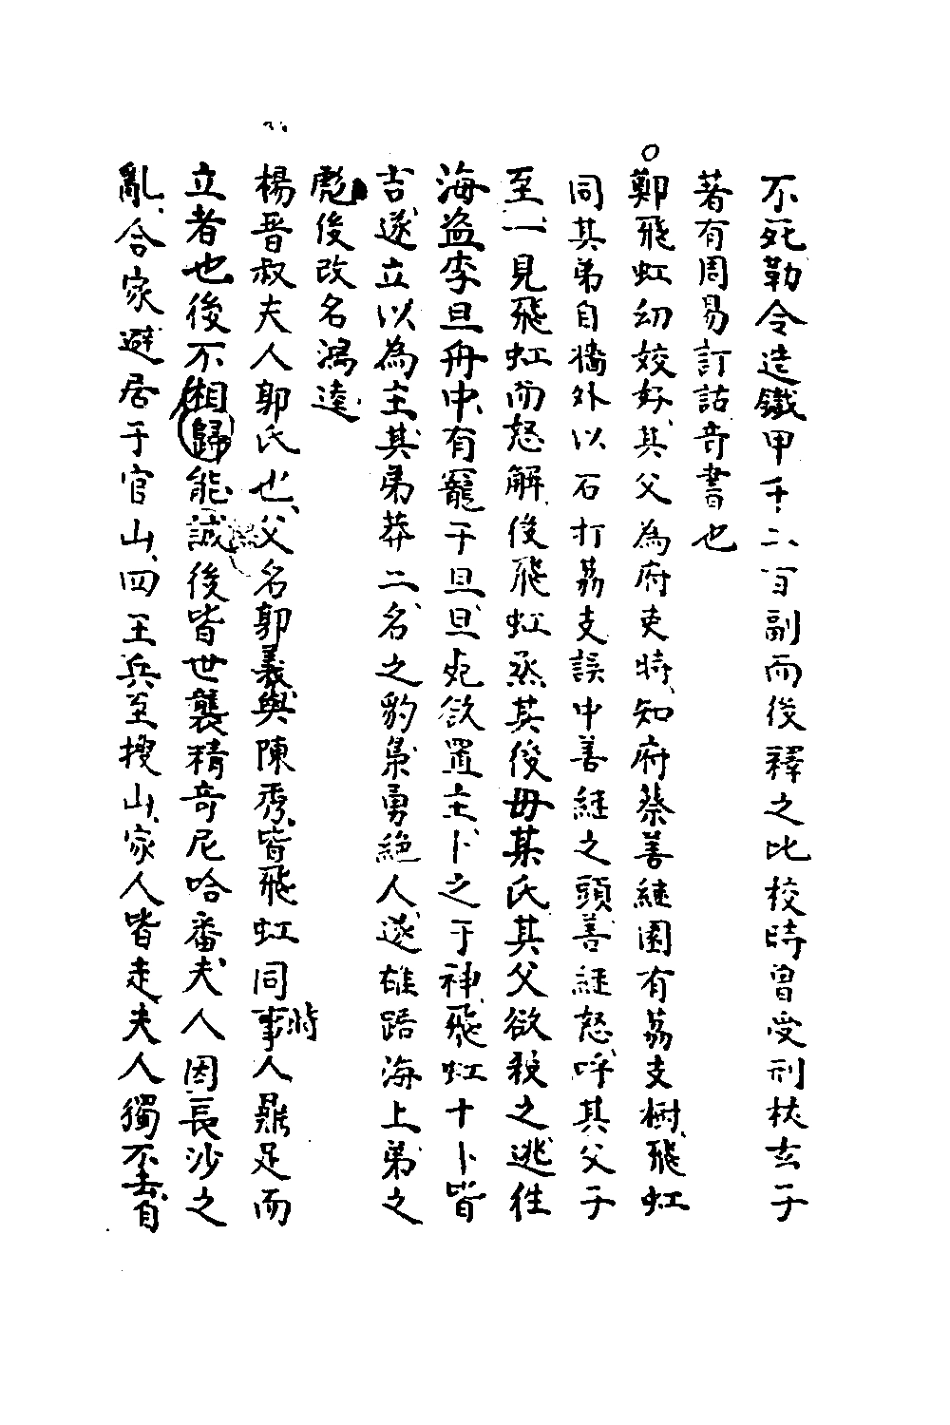 不死勒令造鐵甲千二百副而後釋之比校時曾受刑杖玄于
著有周易訂詁奇書也
○鄭飛虹幼姣好其父為府吏時知府蔡善継園有荔支樹飛虹
同其弟自墻外以石打荔支誤中善継之頭善継怒呼其父于
至一見飛虹而怒解後飛虹烝其後毋某氏其父欲殺之逃往
海盗李旦舟中有寵于旦旦死欲置主卜之于神飛虹十卜皆
吉遂立以為主其弟莽二名之豹梟勇絕人遂雄踞海上弟之
彪後改名鴻逵
楊晋叔夫人郭氏也父名郭義與陳秀皆飛虹同時事人鼎足而
立者也後不相能歸誠後皆世襲精奇尼哈番夫人因長沙之
亂合家避居于官山四王兵至搜山家人皆走夫人獨不去自